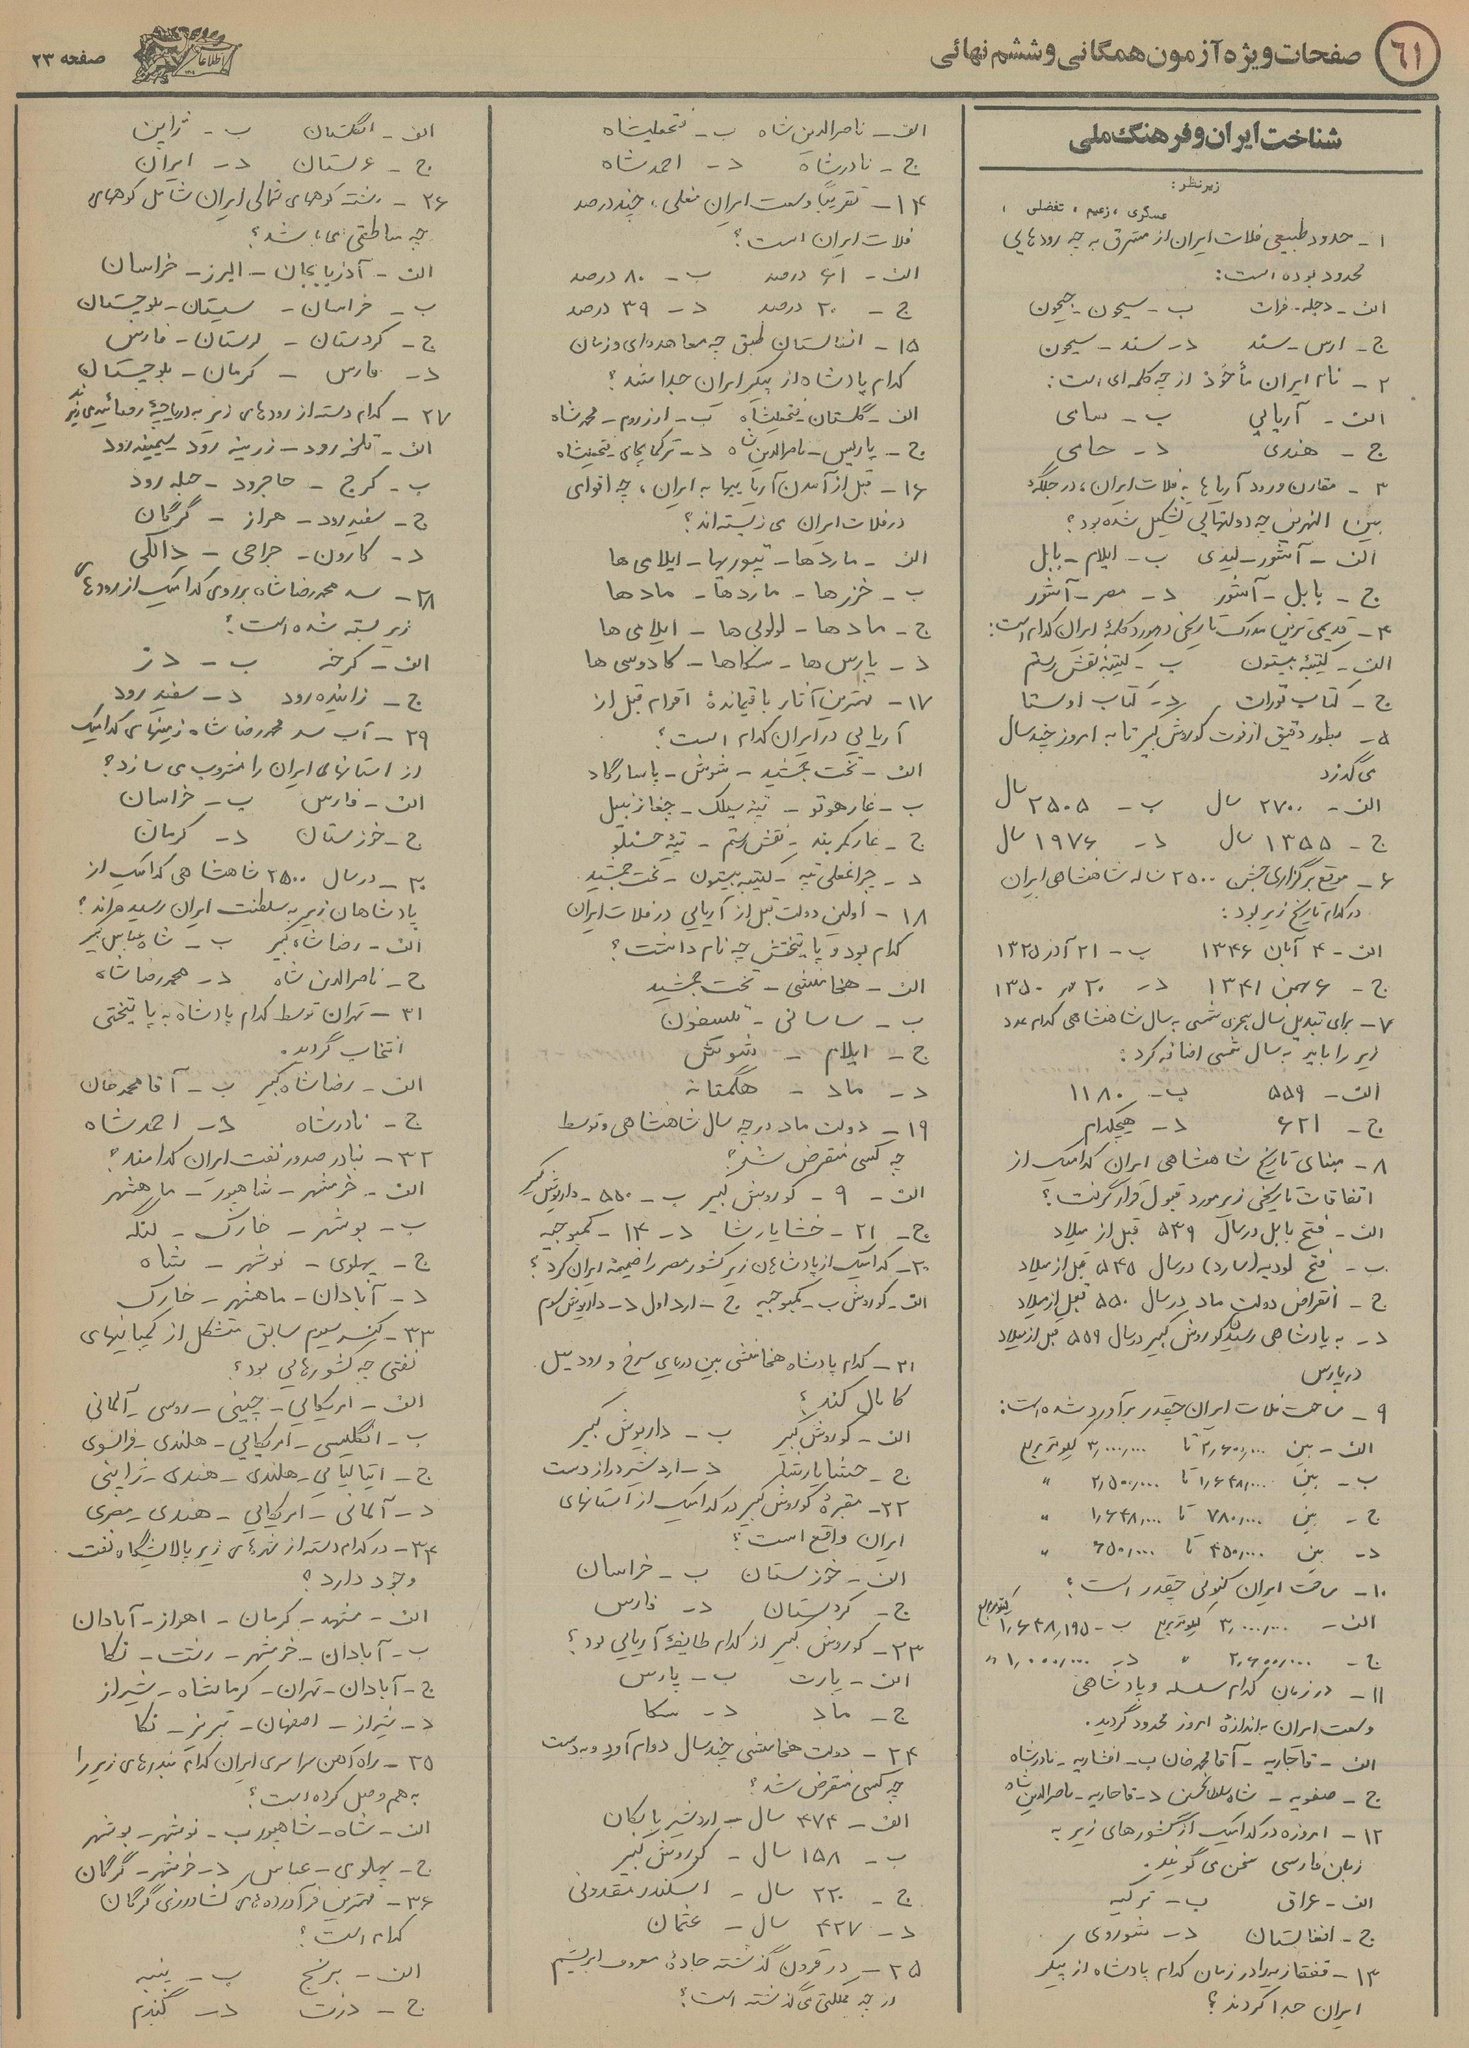 ۶۱
صفحات ویژه آزمون همگانی و ششم نهائی
اطلاعات
صفحه ۲۳
شناخت ایران و فرهنگ ملی
زیر نظر:
عسگری، زعیم، تفضلی،
۱ - حدود طبیعی فلات ایران از مشرق به چه رودهایی
محدود بوده است:
الف - دجله - فرات ب - سیحون - جیحون
ج - ارس - سند د - سند - سیحون
۲ - نام ایران مأخوذ از چه کلمه‌ای است:
الف - آریایی ب - سامی
ج - هندی د - حامی
۳ - مقارن ورود آریاها به فلات ایران، در جلگهٔ
بین النهرین چه دولتهایی تشکیل شده بود؟
الف - آشور - لیدی ب - ایلام - بابل
ج - بابل - آشور د - مصر - آشور
۴ - قدیمی ترین مدرک تاریخی در مورد کلمهٔ ایران کدام است:
الف - کتیبهٔ بیستون ب - کتیبهٔ نقش رستم
ج - کتاب تورات د - کتاب اوستا
۵ - بطور دقیق از فوت کوروش کبیر تا به امروز چند سال
می گذرد
الف - ۲۷۰۰ سال ب - ۲۵۰۵ سال
ج - ۱۳۵۵ سال د - ۱۹۷۶ سال
۶ - موقع برگزاری جشن ۲۵۰۰ ساله شاهنشاهی ایران
در کدام تاریخ زیر بود:
الف - ۴ آبان ۱۳۴۶ ب - ۲۱ آذر ۱۳۲۵
ج - ۶ بهمن ۱۳۴۱ د - ۲۰ مهر ۱۳۵۰
۷ - برای تبدیل سال هجری شمسی به سال شاهنشاهی کدام عدد
زیر را باید به سال شمسی اضافه کرد:
الف - ۵۵۹ ب - ۱۱۸۰
ج - ۶۲۱ د - هیچکدام
۸ - مبنای تاریخ شاهنشاهی ایران کدامیک از
اتفاقات تاریخی زیر مورد قبول قرار گرفت؟
الف - فتح بابل در سال ۵۳۹ قبل از میلاد
ب - فتح لودیه (سارد) در سال ۵۴۵ قبل از میلاد
ج - انقراض دولت ماد در سال ۵۵۰ قبل از میلاد
د - به پادشاهی رسیدن کوروش کبیر در سال ۵۵۹ قبل از میلاد
در پارس
۹ - مساحت فلات ایران چقدر برآورد شده است:
الف - بین ۲٫۶۰۰٫۰۰۰ تا ۳٫۰۰۰٫۰۰۰ کیلومتر مربع
ب - بین ۱٫۶۴۸٫۰۰۰ تا ۲٫۵۰۰٫۰۰۰ "
ج - بین ۷۸۰٫۰۰۰ تا ۱٫۶۴۸٫۰۰۰ "
د - بین ۴۵۰٫۰۰۰ تا ۶۵۰٫۰۰۰ "
۱۰ - مساحت ایران کنونی چقدر است؟
الف - ۳٫۰۰۰٫۰۰۰ کیلومتر مربع ب - ۱٫۶۴۸٫۱۹۵ کیلومتر مربع
ج - ۲٫۶۰۰٫۰۰۰ " د - ۱٫۰۰۰٫۰۰۰ "
۱۱ - در زمان کدام سلسله و پادشاهی
وسعت ایران به اندازهٔ امروز محدود گردید.
الف - قاجاریه - آقا محمد خان ب - افشاریه - نادرشاه
ج - صفویه - شاه سلطان حسین د - قاجاریه - ناصرالدین شاه
۱۲ - امروزه در کدامیک از کشورهای زیر به
زبان فارسی سخن می گویند.
الف - عراق ب - ترکیه
ج - افغانستان د - شوروی
۱۳ - قفقازیه را در زمان کدام پادشاه از پیکر
ایران جدا کردند؟
الف - ناصرالدین شاه ب - فتحعلیشاه
ج - نادرشاه د - احمد شاه
۱۴ - تقریباً وسعت ایران فعلی، چند درصد
فلات ایران است؟
الف - ۶۱ درصد ب - ۸۰ درصد
ج - ۲۰ درصد د - ۳۹ درصد
۱۵ - افغانستان طبق چه معاهده‌ای و زمان
کدام پادشاه از پیکر ایران جدا شد؟
الف - گلستان - فتحعلیشاه ب - ارزروم - محمد شاه
ج - پاریس - ناصرالدین شاه د - ترکمانچای - فتحعلیشاه
۱۶ - قبل از آمدن آریاییها به ایران، چه اقوامی
در فلات ایران می زیسته‌اند؟
الف - ماردها - تیپوریها - ایلامی ها
ب - خزرها - ماردها - مادها
ج - مادها - لولوبی ها - ایلامی ها
د - پارس ها - سکاها - کادوسی ها
۱۷ - مهمترین آثار باقیماندهٔ اقوام قبل از
آریایی در ایران کدام است؟
الف - تخت جمشید - شوش - پاسارگاد
ب - غار هوتو - تپه سیلک - چغازنبیل
ج - غار کمربند - نقش رستم - تپهٔ حسنلو
د - چراغعلی تپه - کتیبه بیستون - تخت جمشید
۱۸ - اولین دولت قبل از آریایی در فلات ایران
کدام بود و پایتختش چه نام داشت؟
الف - هخامنشی - تخت جمشید
ب - ساسانی - تیسفون
ج - ایلام - شوش
د - ماد - هگمتانه
۱۹ - دولت ماد در چه سال شاهنشاهی و توسط
چه کسی منقرض شد؟
الف - ۹ - کوروش کبیر ب - ۵۵۰ - داریوش کبیر
ج - ۲۱ - خشایارشا د - ۱۴ - کمبوجیه
۲۰ - کدامیک از پادشاهان زیر کشور مصر را ضمیمهٔ ایران کرد؟
الف - کوروش ب - کمبوجیه ج - ارد اول د - داریوش سوم
۲۱ - کدام پادشاه هخامنشی بین دریای سرخ و رود نیل
کانال کند؟
الف - کوروش کبیر ب - داریوش کبیر
ج - خشایارشا د - اردشیر درازدست
۲۲ - مقبرهٔ کوروش کبیر در کدامیک از استانهای
ایران واقع است؟
الف - خوزستان ب - خراسان
ج - کردستان د - فارس
۲۳ - کوروش کبیر از کدام طایفهٔ آریایی بود؟
الف - پارت ب - پارس
ج - ماد د - سکا
۲۴ - دولت هخامنشی چند سال دوام آورد و بدست
چه کسی منقرض شد؟
الف - ۴۷۴ سال - اردشیر بابکان
ب - ۱۵۸ سال - کوروش کبیر
ج - ۲۲۰ سال - اسکندر مقدونی
د - ۴۲۷ سال - عثمان
۲۵ - در قرون گذشته جادهٔ معروف ابریشم
از چه مملکتی می گذشته است؟
الف - انگلستان ب - ژاپن
ج - عربستان د - ایران
۲۶ - رشته کوههای شمالی ایران شامل کوههای
چه مناطقی می باشد؟
الف - آذربایجان - البرز - خراسان
ب - خراسان - سیستان - بلوچستان
ج - کردستان - لرستان - فارس
د - فارس - کرمان - بلوچستان
۲۷ - کدام دسته از رودهای زیر به دریاچهٔ رضائیه می ریزند
الف - تلخه رود - زرینه رود - سیمینه رود
ب - کرج - جاجرود - حبله رود
ج - سفید رود - هراز - گرگان
د - کارون - جراحی - دالکی
۲۸ - سد محمدرضا شاه بر روی کدامیک از رودهای
زیر بسته شده است؟
الف - کرخه ب - دز
ج - زاینده رود د - سفید رود
۲۹ - آب سد محمدرضا شاه زمینهای کدامیک
از استانهای ایران را مشروب می سازد؟
الف - فارس ب - خراسان
ج - خوزستان د - کرمان
۳۰ - در سال ۲۵۰۰ شاهنشاهی کدامیک از
پادشاهان زیر به سلطنت ایران رسیده‌اند؟
الف - رضا شاه کبیر ب - شاه عباس کبیر
ج - ناصرالدین شاه د - محمدرضا شاه
۳۱ - تهران توسط کدام پادشاه به پایتختی
انتخاب گردید.
الف - رضا شاه کبیر ب - آقا محمد خان
ج - نادرشاه د - احمد شاه
۳۲ - بنادر صدور نفت ایران کدامند؟
الف - خرمشهر - شاهپور - ماهشهر
ب - بوشهر - خارک - لنگه
ج - پهلوی - نوشهر - شاه
د - آبادان - ماهشهر - خارک
۳۳ - کنسرسیوم سابق متشکل از کمپانیهای
نفتی چه کشورهایی بود؟
الف - امریکایی - چینی - روسی - آلمانی
ب - انگلیسی - امریکایی - هلندی - فرانسوی
ج - ایتالیایی - هلندی - هندی - ژاپنی
د - آلمانی - امریکایی - هندی - مصری
۳۴ - در کدام دسته از شهرهای زیر پالایشگاه نفت
وجود دارد؟
الف - مشهد - کرمان - اهواز - آبادان
ب - آبادان - خرمشهر - رشت - نکا
ج - آبادان - تهران - کرمانشاه - شیراز
د - شیراز - اصفهان - تبریز - نکا
۳۵ - راه آهن سراسری ایران کدام بندرهای زیر را
به هم وصل کرده است؟
الف - شاه - شاهپور ب - نوشهر - بوشهر
ج - پهلوی - عباس د - خرمشهر - گرگان
۳۶ - مهمترین فرآورده‌های کشاورزی گرگان
کدام است؟
الف - برنج ب - پنبه
ج - ذرت د - گندم